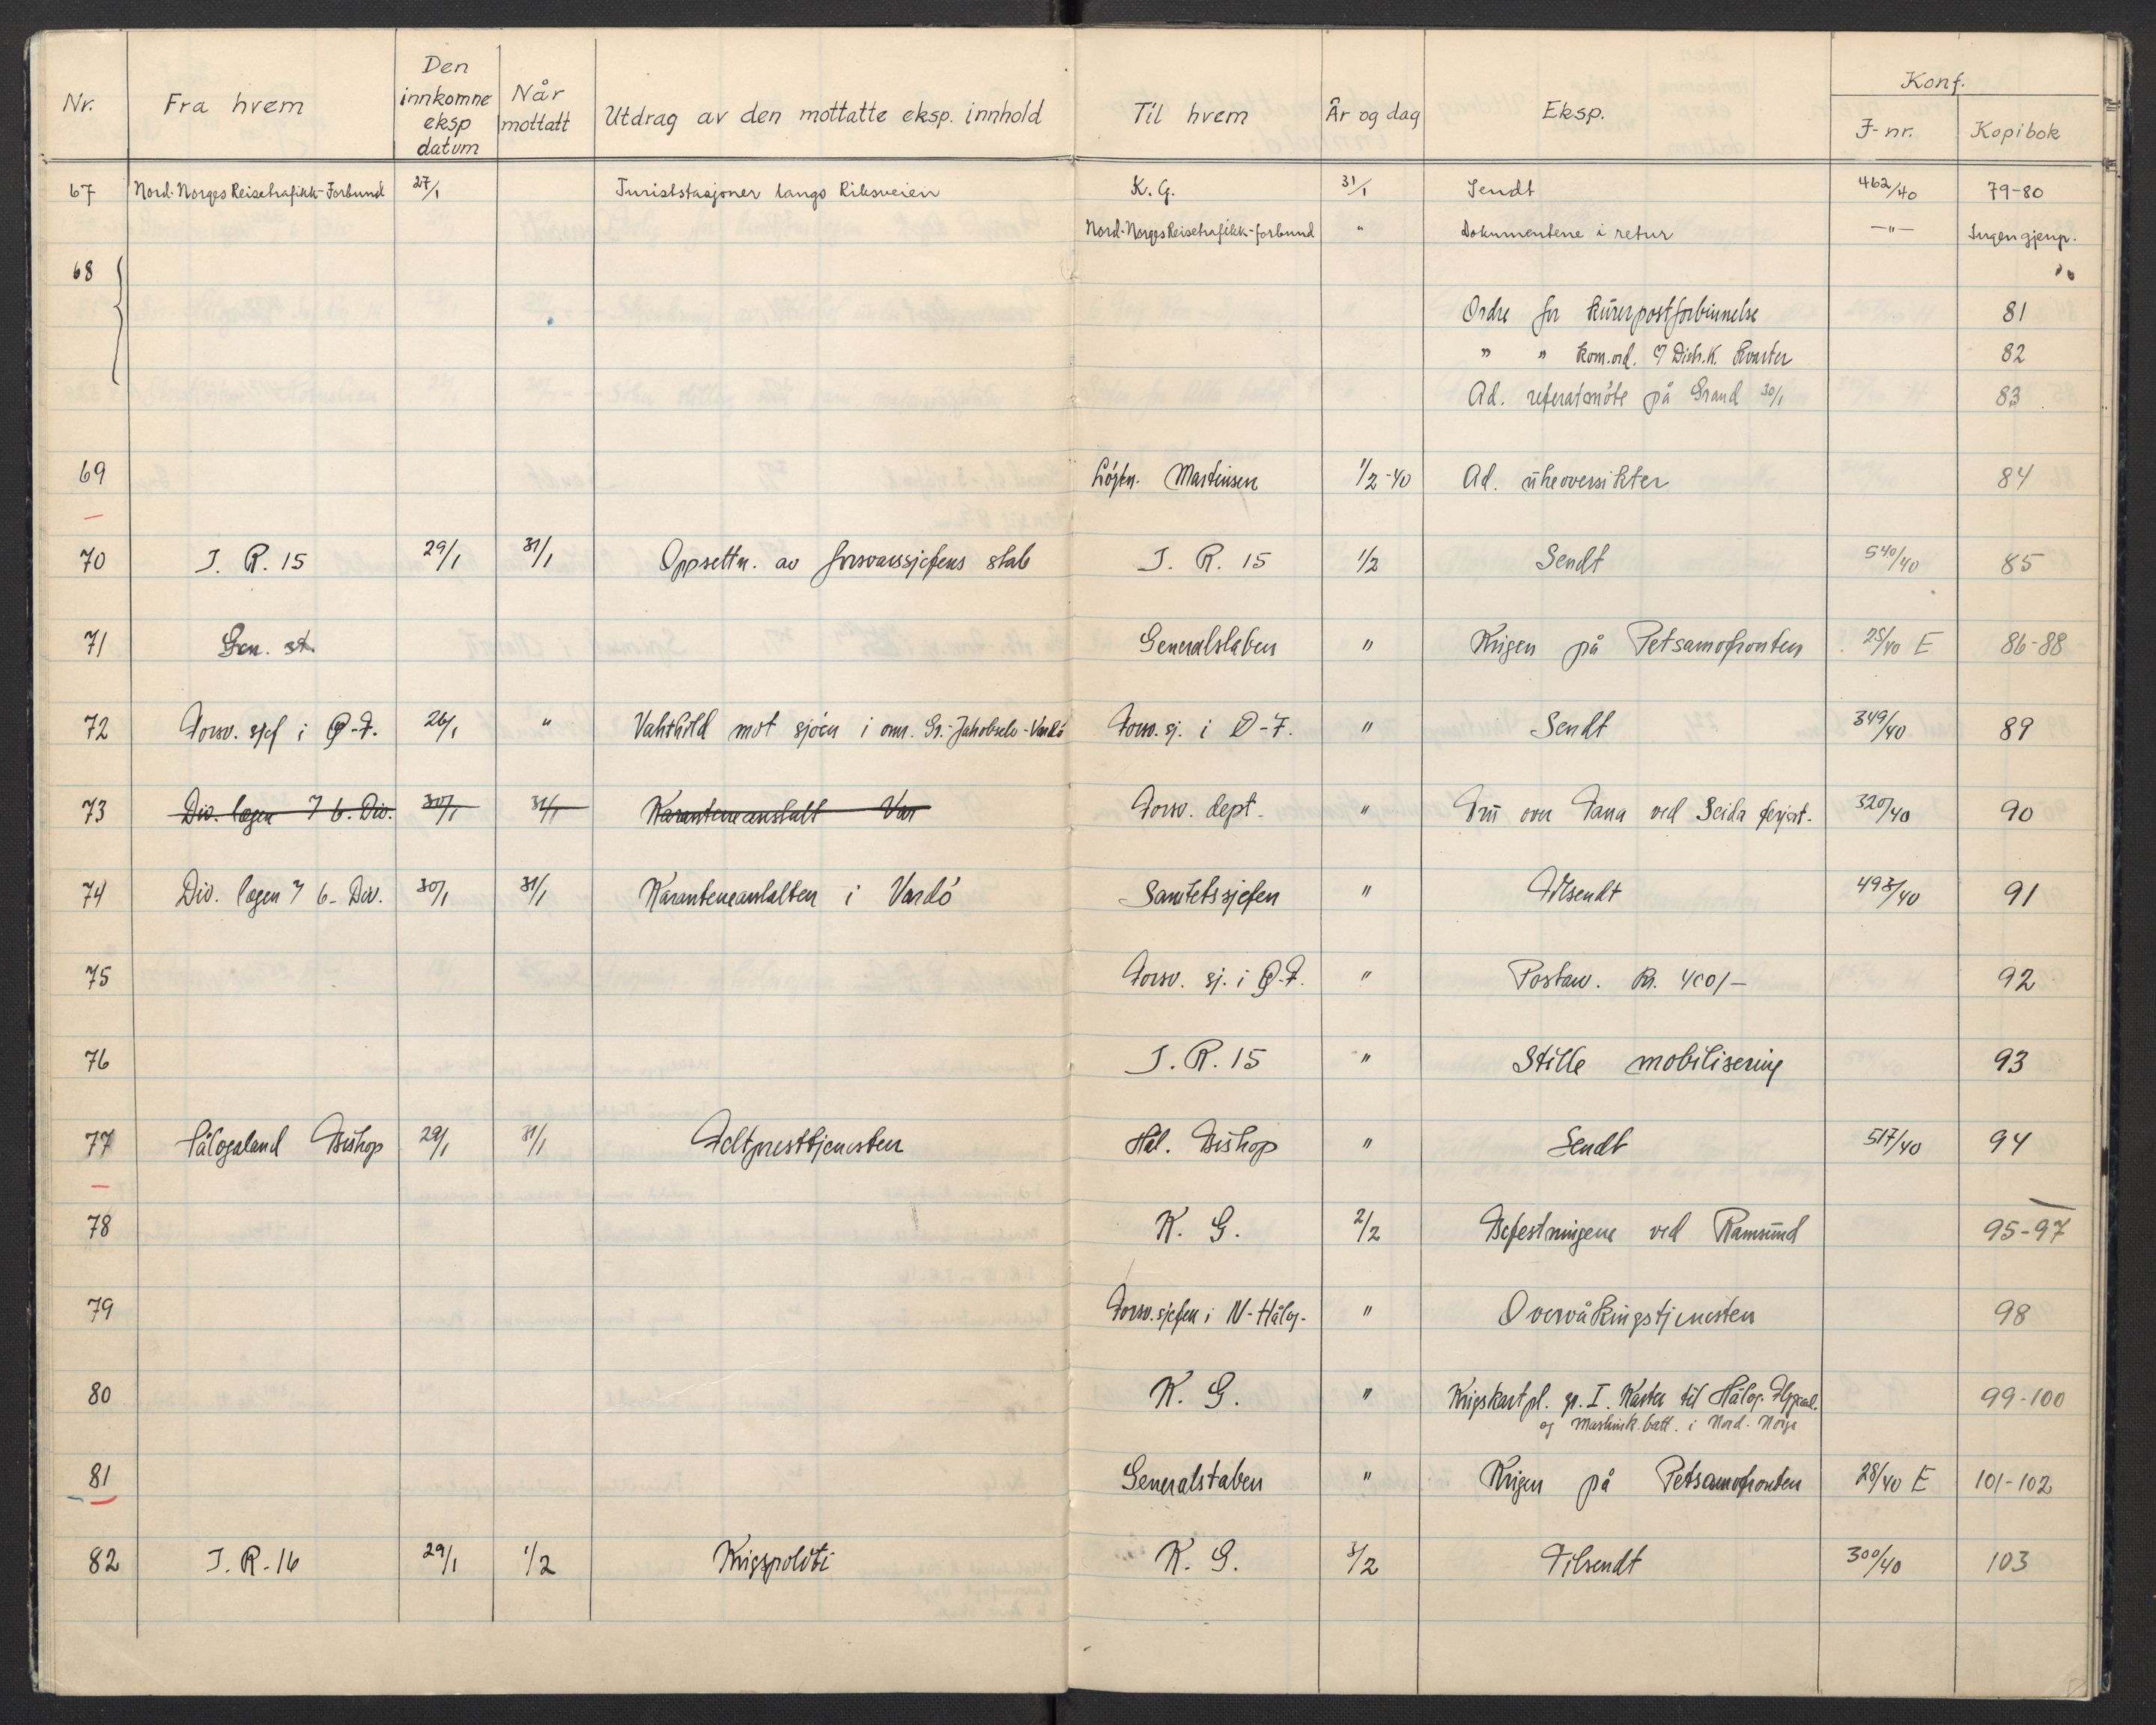 Nr. Fra hvem Den innkomne eksp datum Når mottatt Utdrag av den mottatte eksp. innhold Til hvem År og dag Eksp. Konf. J-nr. Kopibok
67 Nord-Norges Reisetrafikk-Forbund 27/1 Turiststasjoner langs Riksveien K. G. 31/1 Sendt 462/40 79-80
Nord-Norges Reisetrafikk-forbund " Dokumentene i retur -"- Ingen gjenp.
68
Ordre for kurerpostforbinnelse 81
" " kom.ord. Distr.k. 82
Ad. referatmöte på Grand 30/1 83
69 Löytn. Martinsen 1/2-40 Ad. ukeoversikter 84
70 I. R. 15 29/1 31/1 Oppsettn. av forsvarssjefens stab I. R. 15 1/2 Sendt 540/40 85
71 Gen. st. Generalstaben " Krigen på Petsamofronten 25/40 E 86-88
72 Forsv. sjef i Ø-F. 26/1 " Vakthold mot sjöen i omr. Gr.-Jakobselv-Vardö Forsv. sj. i Ø-F. " Sendt 349/40 89
73 Div. legen 6. Div. 30/1 31/1 Karanteneanstalt Var Forsv. dept. " over Tana ved Seida 320/40 90
74 Div. legen 6. Div. 30/1 31/1 Karanteneanstalten i Vardö Sanitetssjefen " Tilsendt 493/40 91
75 Forsv. sj. i Ø-F. " Postanv. Kr. 400/- 92
76 I. R. 15 " Stille mobilisering 93
77 Hålogaland Biskop 29/1 31/1 Feltpresttjenesten Hål. Biskop " Sendt 517/40 94
78 K. G. 2/2 Befestningene ved Ramsund 95-97
79 Forsv.sjefen i N-Hålog. " Overvåkingstjenesten 98
80 K. G. " Krigskartpl. gr. I. Karter til Hålog.
og i Nord-Norge 99-100
81 Generalstaben " Krigen på Petsamofronten 28/40 E 101-102
82 I. R. 16 29/1 1/2 Krigspoliti K. G. 3/2 Tilsendt 300/40 103